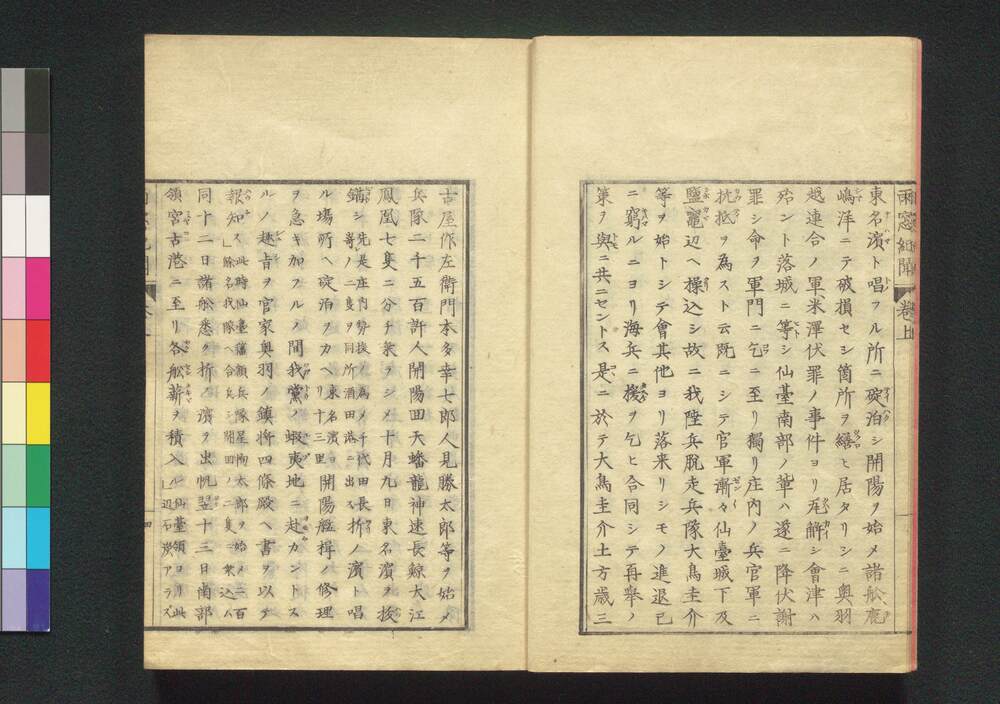 雨窓紀聞 巻上
東名濱ト唱フル所ニ碇泊シ開陽ヲ始メ諸舩鹿
嶋洋ニテ破損セシ箇所ヲ繕ヒ居タリシニ奥羽
越連合ノ軍米澤伏罪ノ事件ヨリ瓦解シ會津ハ
殆ント落城ニ等シ仙臺南部ノ輩ハ遂ニ降伏謝
罪シ命ヲ軍門ニ乞ニ至リ獨リ庄内ノ兵官軍ニ
抗抵ヲ為スト云既ニシテ官軍漸々仙臺城下及
鹽竈辺ヘ操込シ故ニ我陸兵脱走兵隊大鳥圭介
等ヲ始トシテ會其他ヨリ落来リシモノ進退已
ニ窮ルニヨリ海兵ニ援ヲ乞ヒ合同シテ再舉ノ
策ヲ與ニ共ニセントス是ニ於テ大鳥圭介土方歳三
古屋作左衛門本多幸七郎人見勝太郎等ヲ始メ
兵隊二千五百許人開陽回天蟠龍神速長鯨大江
鳳凰七隻ニ分チ乗ラシメ十月九日東名濱ヲ抜
錨シ先是庄内勢援ノ為メ千代田長
﨑ノ二隻ヲ同所酒田港ニ出ス折ノ濱ト唱
ル場所ヘ碇泊ヲカヘリ東名濱ヨリ十三里開陽艦楫ノ修理
ヲ急キ加フルノ間我黨ノ蝦夷地ニ赴カントス
ルノ趣旨ヲ官家奥羽ノ鎮将四條殿ヘ書ヲ以テ
報知ス此時仙臺藩額兵隊星恂太郎ヲ始メ二百
餘名我隊ヘ合兵シ開回ノ二隻ニ乗込ム
同十二日諸舩悉ク折ノ濱ヲ出帆翌十三日南部
領宮古港ニ至リ各舩薪ヲ積入ル仙臺領ヨリ此
辺石炭アラズ
四